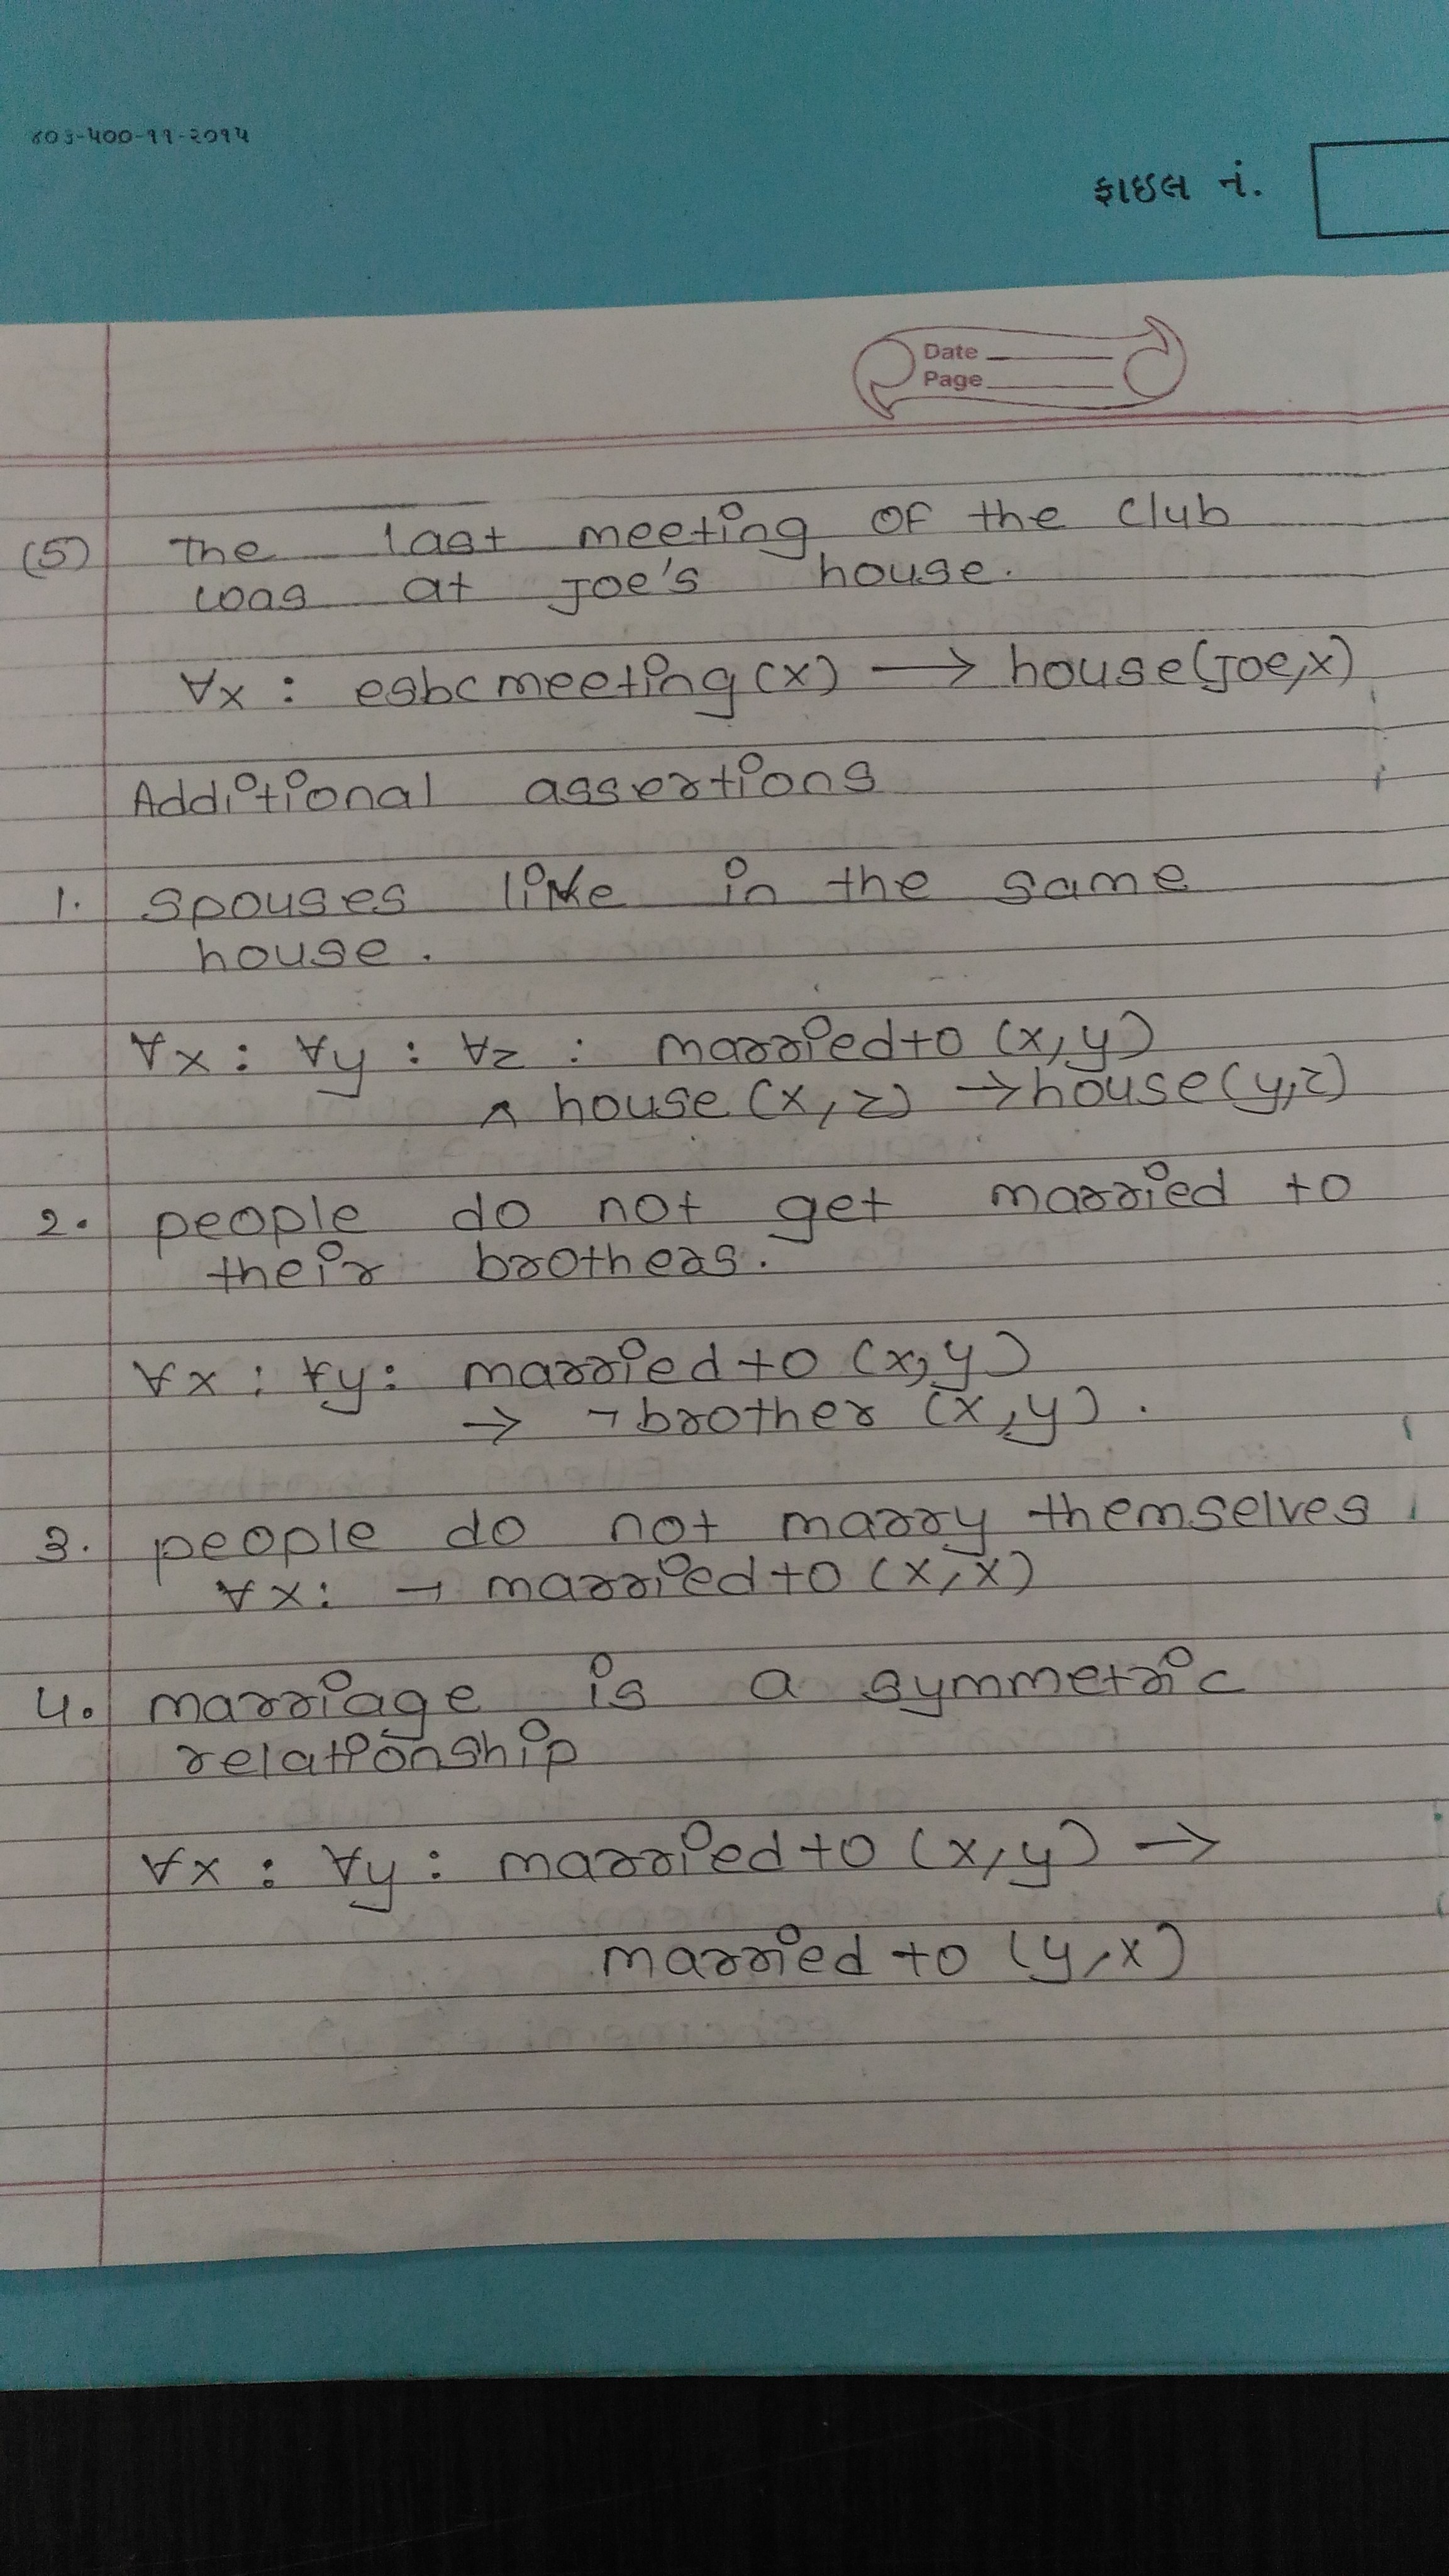 ૬૦૩-૫૦૦-૧૧-૨૦૧૫
ફાઇલ નં.
Date
Page
(5) The last meeting of the club
was at Joe's house.
∀x : esbcmeeting(x) → house(Joe,x)
Additional assertions
1. Spouses like in the same
house.
∀x : ∀y : ∀z : married to (x,y)
∧ house(x,z) → house(y,z)
2. people do not get married to
their brothers.
∀x : ∀y : married to (x,y)
→ ¬ brother (x,y).
3. people do not marry themselves
∀x: ¬ married to (x,x)
4. marriage is a symmetric
relationship
∀x : ∀y : married to (x,y) →
married to (y,x)